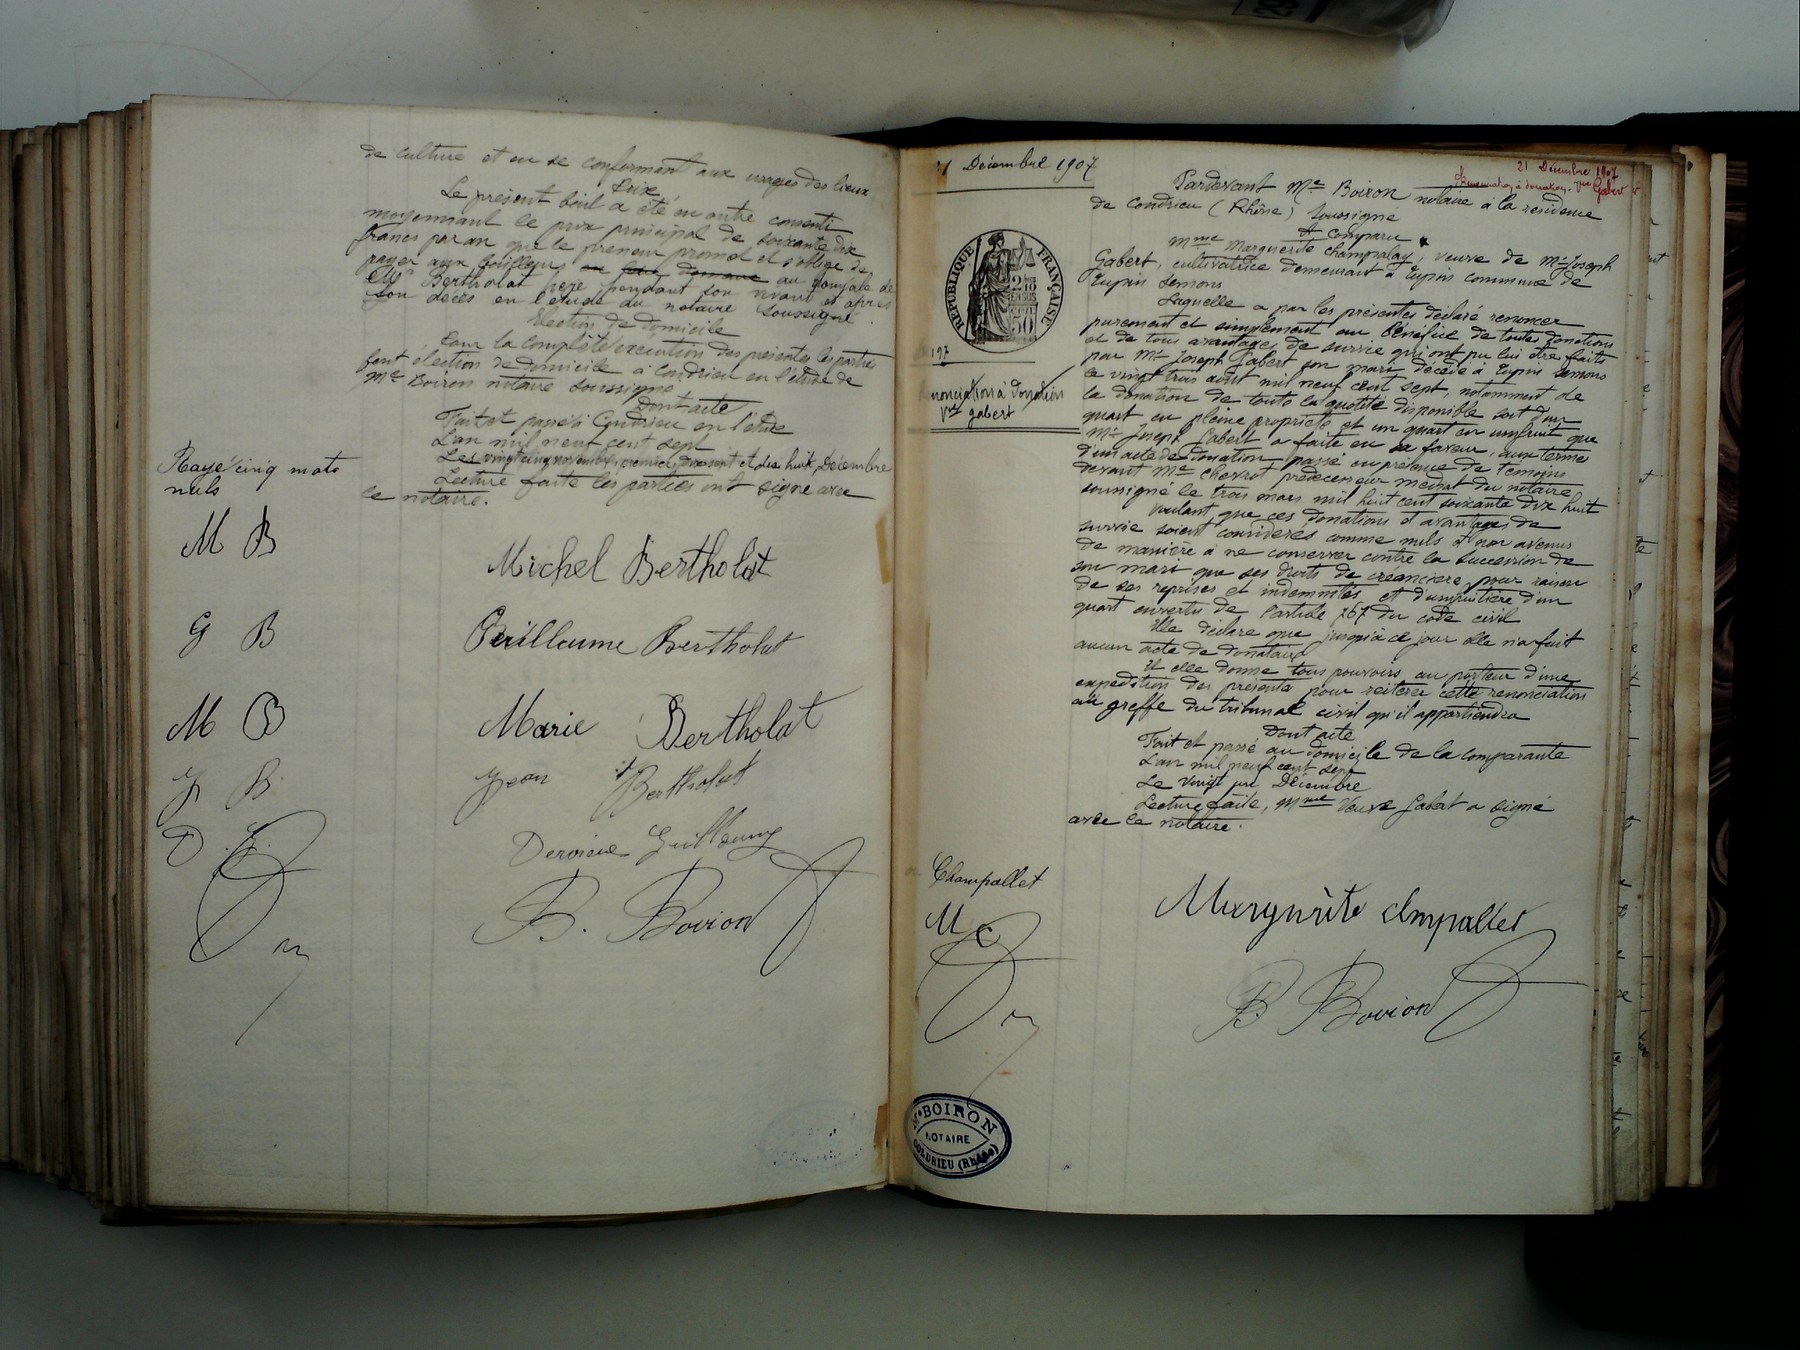 de culture et en se conformant aux usages des lieux
Prix
Le présent bail a été en outre consenti
moyennant le prix principal de soixante dix
francs par an que le preneur promet et s'oblige de
payer aux bailleurs au domicile de
Mr Bertholat père pendant son vivant et après
son décès en l'étude du notaire soussigné.
Election de domicile
Pour la complète exécution des présentes les parties
font élection de domicile à Condrieu en l'étude de
Me Boiron notaire soussigné
Dont acte
Fait et passé à Condrieu en l'étude
L'an mil neuf cent sept
Les vingt cinq novembre, premier, et dix huit Décembre
Lecture faite les parties ont signé avec
le notaire.
Rayé cinq mots
nuls
M B
G B
M B
J B
D. G.
Michel Bertholat
Guillaume Bertholat
Marie Bertholat
Jean Bertholat
Dervieux Guillaume
B. Boiron
21 Décembre 1907
21 Décembre 1907
Renonciation à donation - Vve Gabert
RÉPUBLIQUE FRANÇAISE
197
Renonciation à Donation
Vve Gabert
Pardevant Me Boiron notaire à la résidence
de Condrieu (Rhône) soussigné
A Comparu
Mme Marguerite Champalay, veuve de Mr Joseph
Gabert, cultivatrice demeurant à Tupin commune de
Tupin Semons
Laquelle a par les présentes déclaré renoncer
purement et simplement au bénéfice de toutes donations
et de tous avantages de survie qui ont pu lui être faits
par Mr Joseph Gabert son mari décédé à Tupin Semons
le vingt trois août mil neuf cent sept, notamment de
la donation de toute la quotité disponible soit d'un
quart en pleine propriété et un quart en usufruit que
Mr Joseph Gabert a faite en sa faveur, aux termes
d'un acte de donation passé en présence de témoins
devant Me Chevrot prédécesseur médiat du notaire
soussigné le trois mars mil huit cent soixante dix huit
Voulant que ces donations et avantages de
survie soient considérés comme nuls et non avenus
de manière à ne conserver contre la succession de
son mari que ses droits de créancière pour raison
de ses reprises et indemnités et d'usufruitière d'un
quart en vertu de l'article 767 du code civil
Elle déclare que jusqu'à ce jour elle n'a fait
aucun acte de donataire
Et elle donne tous pouvoirs au porteur d'une
expédition des présentes pour réitérer cette renonciation
au greffe du tribunal civil qu'il appartiendra
Dont acte
Fait et passé au domicile de la comparante
L'an mil neuf cent sept
Le vingt un Décembre
Lecture faite, Mme Veuve Gabert a signé
avec le notaire.
Champallet
M C
Margurite Chmpallet
B Boiron
Me BOIRON
NOTAIRE
CONDRIEU (Rhône)